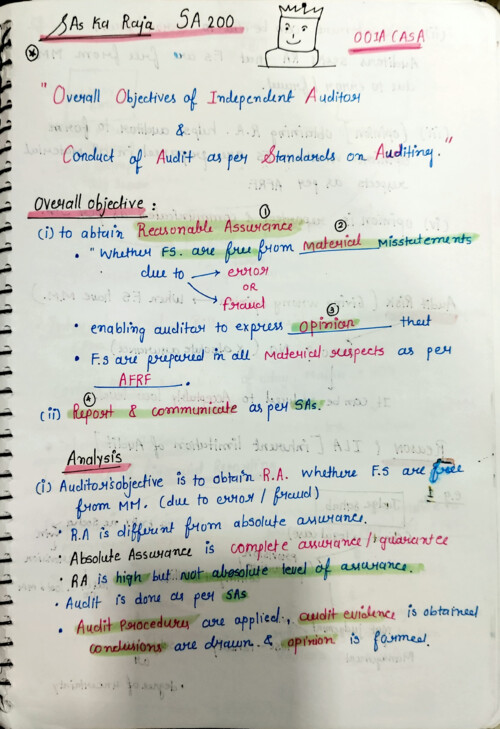 SAs Ka Raja SA 200
OOIA CASA
"Overall Objectives of Independent Auditor
&
Conduct of Audit as per Standards on Auditing."
Overall objective :
①
(i) to obtain Reasonable Assurance
②
• "Whether FS. are free from Material Misstatements
due to → error
OR
→ fraud
③
• enabling auditor to express opinion that
• F.S are prepared in all Material respects as per
AFRF .
④
(ii) Report & communicate as per SAs.
Analysis
(i) Auditor's objective is to obtain R.A. whethere F.S are free
from MM. (due to error / fraud)
• R.A is different from absolute assurance.
• Absolute Assurance is complete assurance / guarantee
• RA is high but not absolute level of assurance.
• Audit is done as per SAs
• Audit Procedures are applied, audit evidence is obtained
conclusions are drawn & opinion is formed.